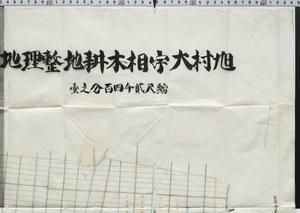 旭村大字相木耕地整理地
縮尺貳千四百分之壹